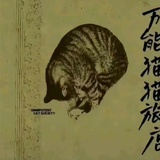 万能猫猫旅店
CAT SOCIETY